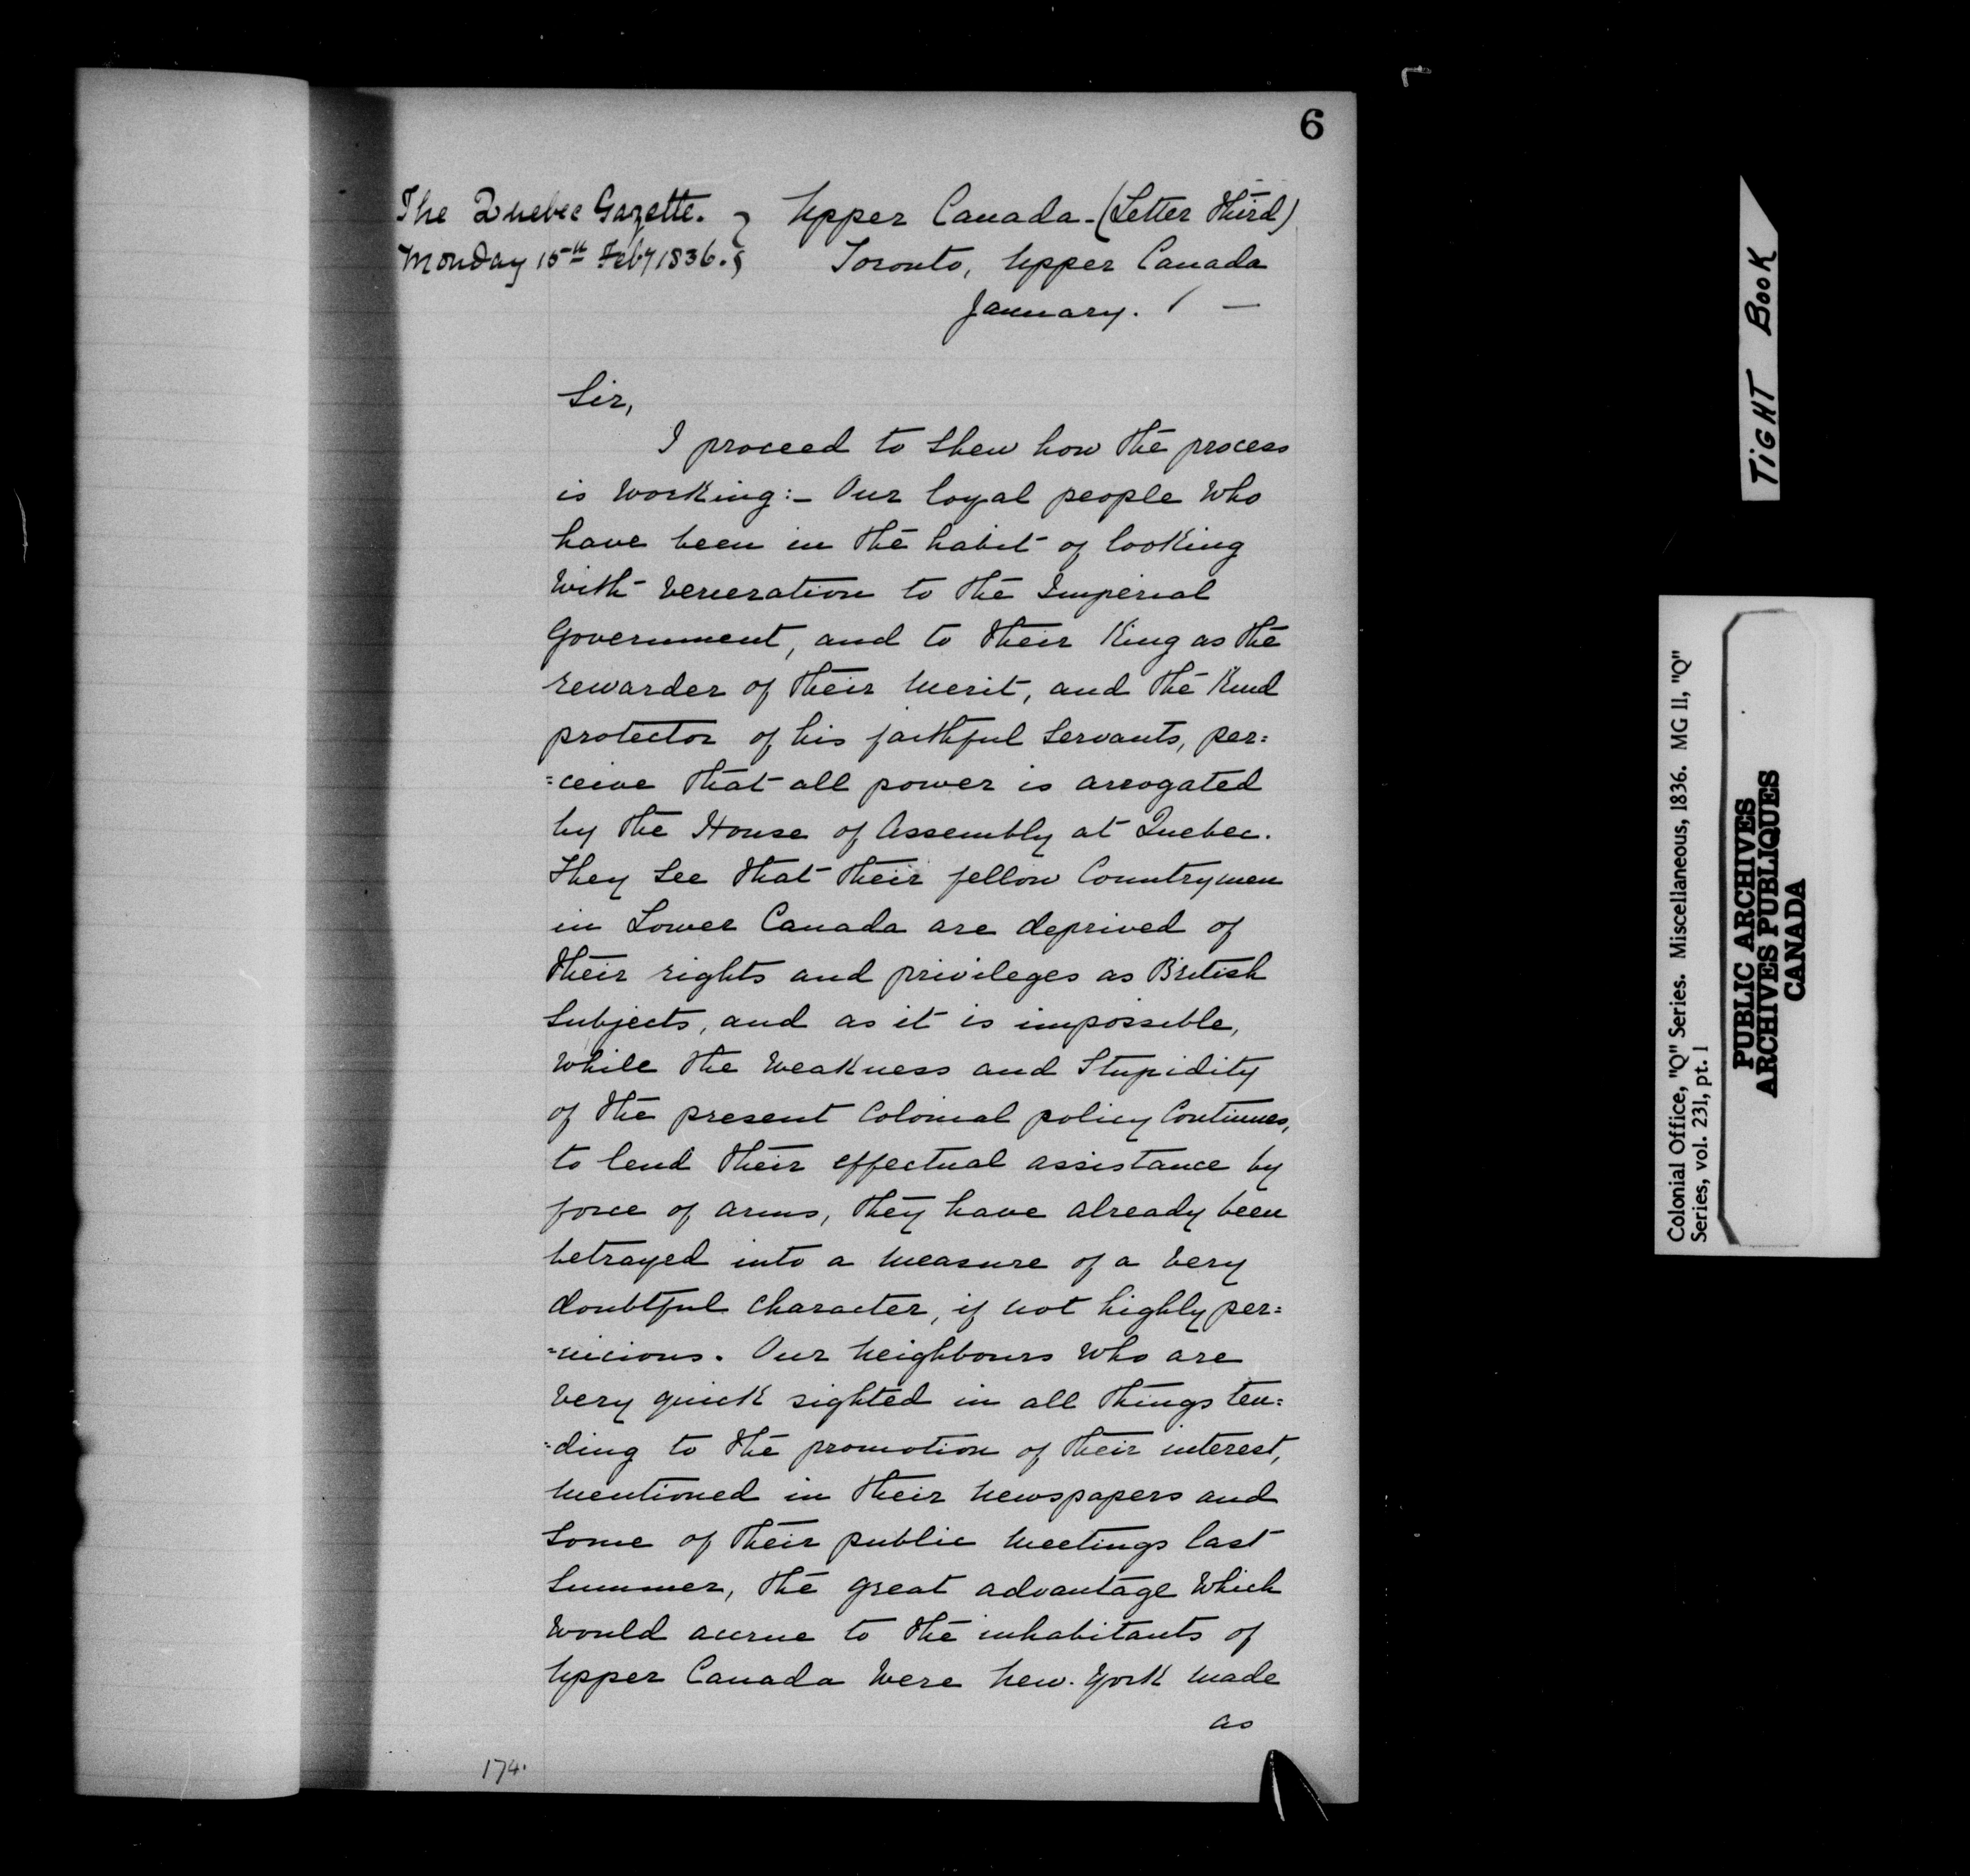 6
The Quebec Gazette.
Monday 15th Feby 1836.
Upper Canada - (Letter Third)
Toronto, Upper Canada
January. / —
Sir,
I proceed to shew how the process
is working:- Our loyal people who
have been in the habit of looking
with veneration to the Imperial
Government, and to their King as the
rewarder of their merit, and the kind
protector of his faithful servants, per=
=ceive that all power is arrogated
by the House of Assembly at Quebec.
They see that their fellow Countrymen
in Lower Canada are deprived of
their rights and privileges as British
Subjects, and as it is impossible,
while the weakness and Stupidity
of the present Colonial policy Continues,
to lend their effectual assistance by
force of arms, they have already been
betrayed into a measure of a very
doubtful character, if not highly per=
=nicious. Our neighbours who are
very quick sighted in all things ten=
=ding to the promotion of their interest,
mentioned in their newspapers and
some of their public meetings last
summer, the great advantage which
would accrue to the inhabitants of
Upper Canada were New. York made
as
174.
TIGHT BOOK
Colonial Office, "Q" Series. Miscellaneous, 1836. MG 11, "Q"
Series, vol. 231, pt. 1
PUBLIC ARCHIVES
ARCHIVES PUBLIQUES
CANADA